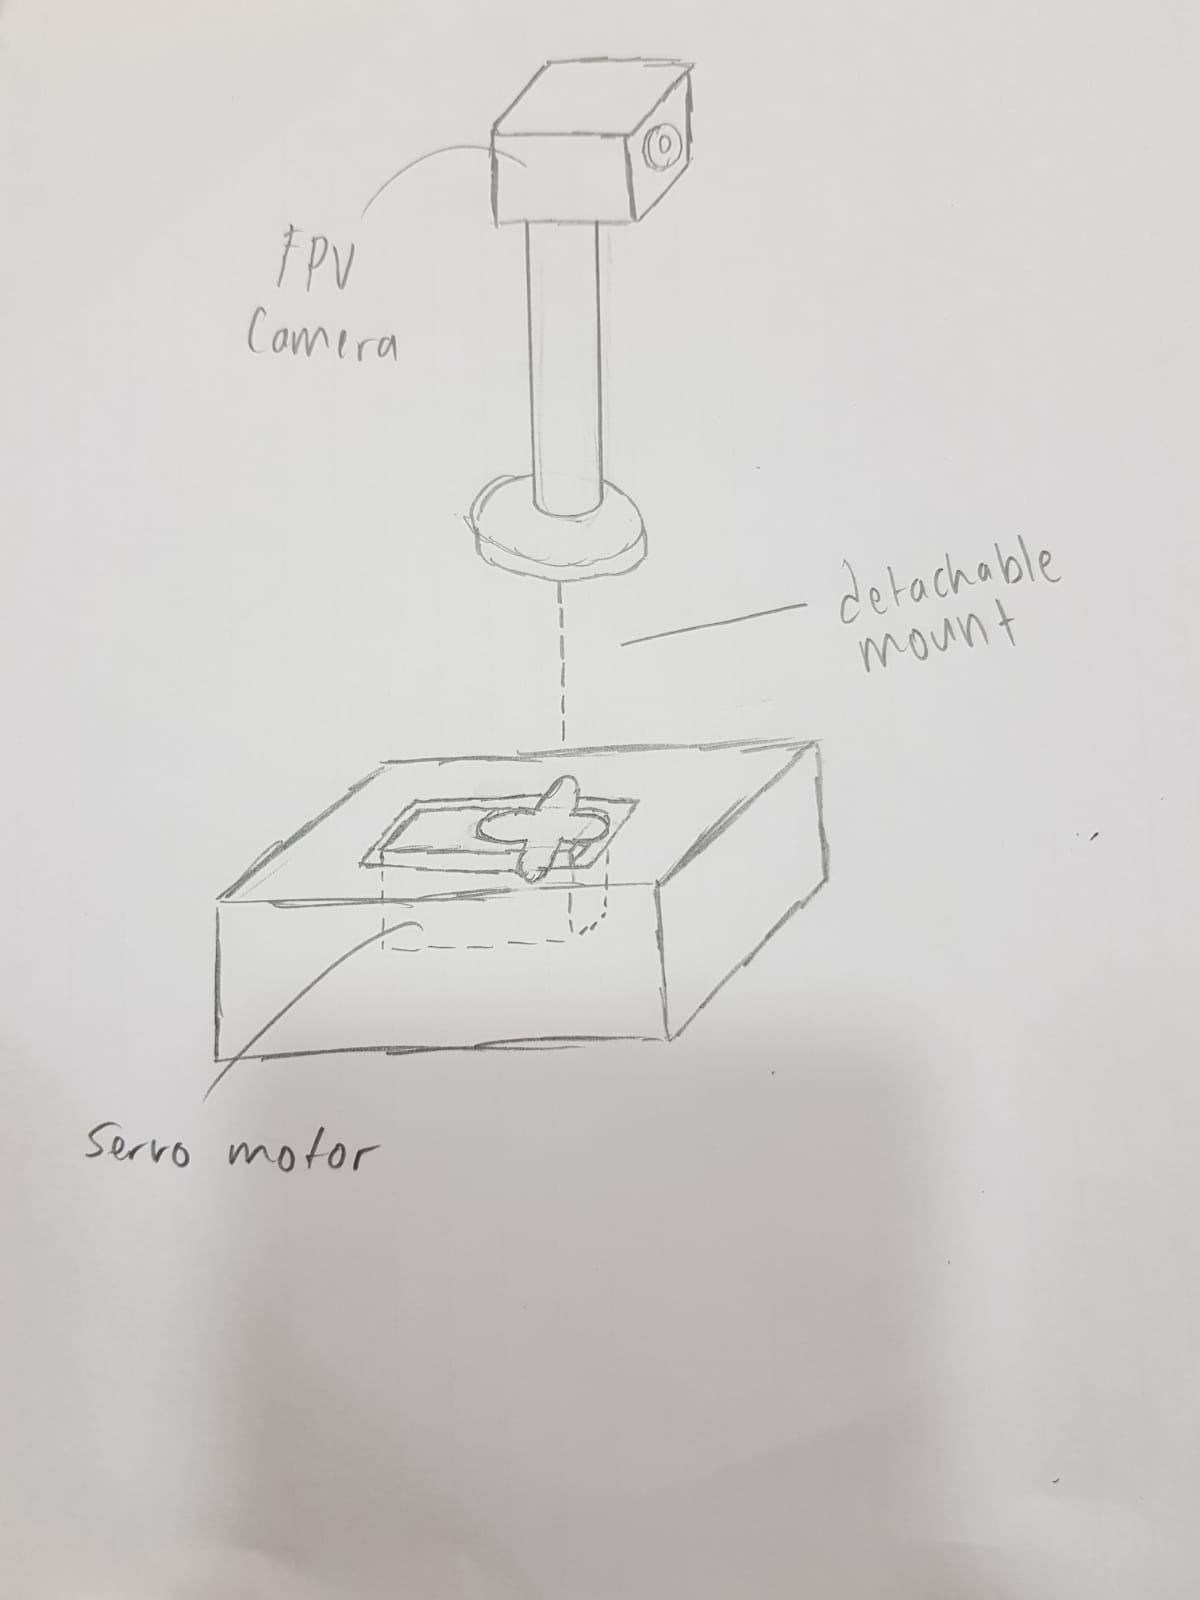 FPV
Camera
detachable
mount
Servo motor